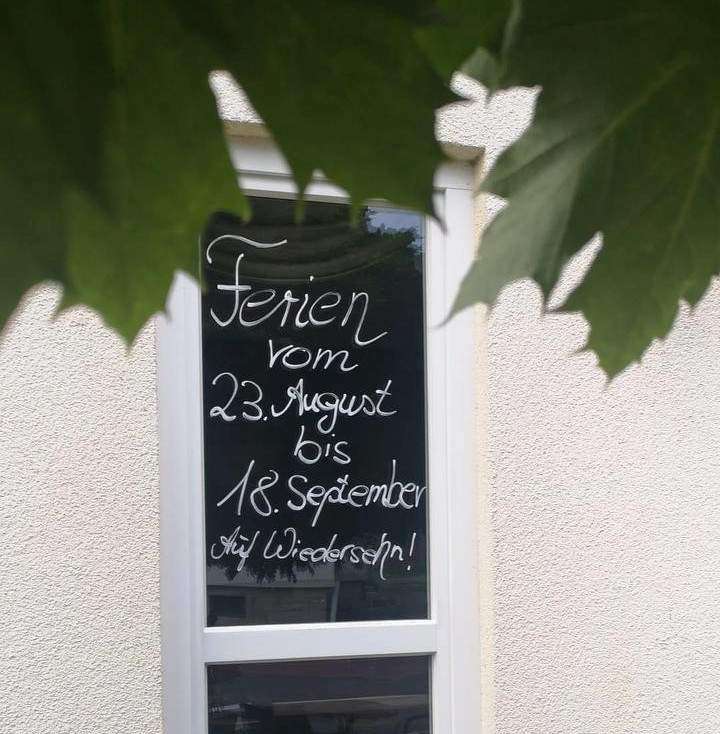 Ferien
vom
23. August
bis
18. September
Auf Wiedersehn!